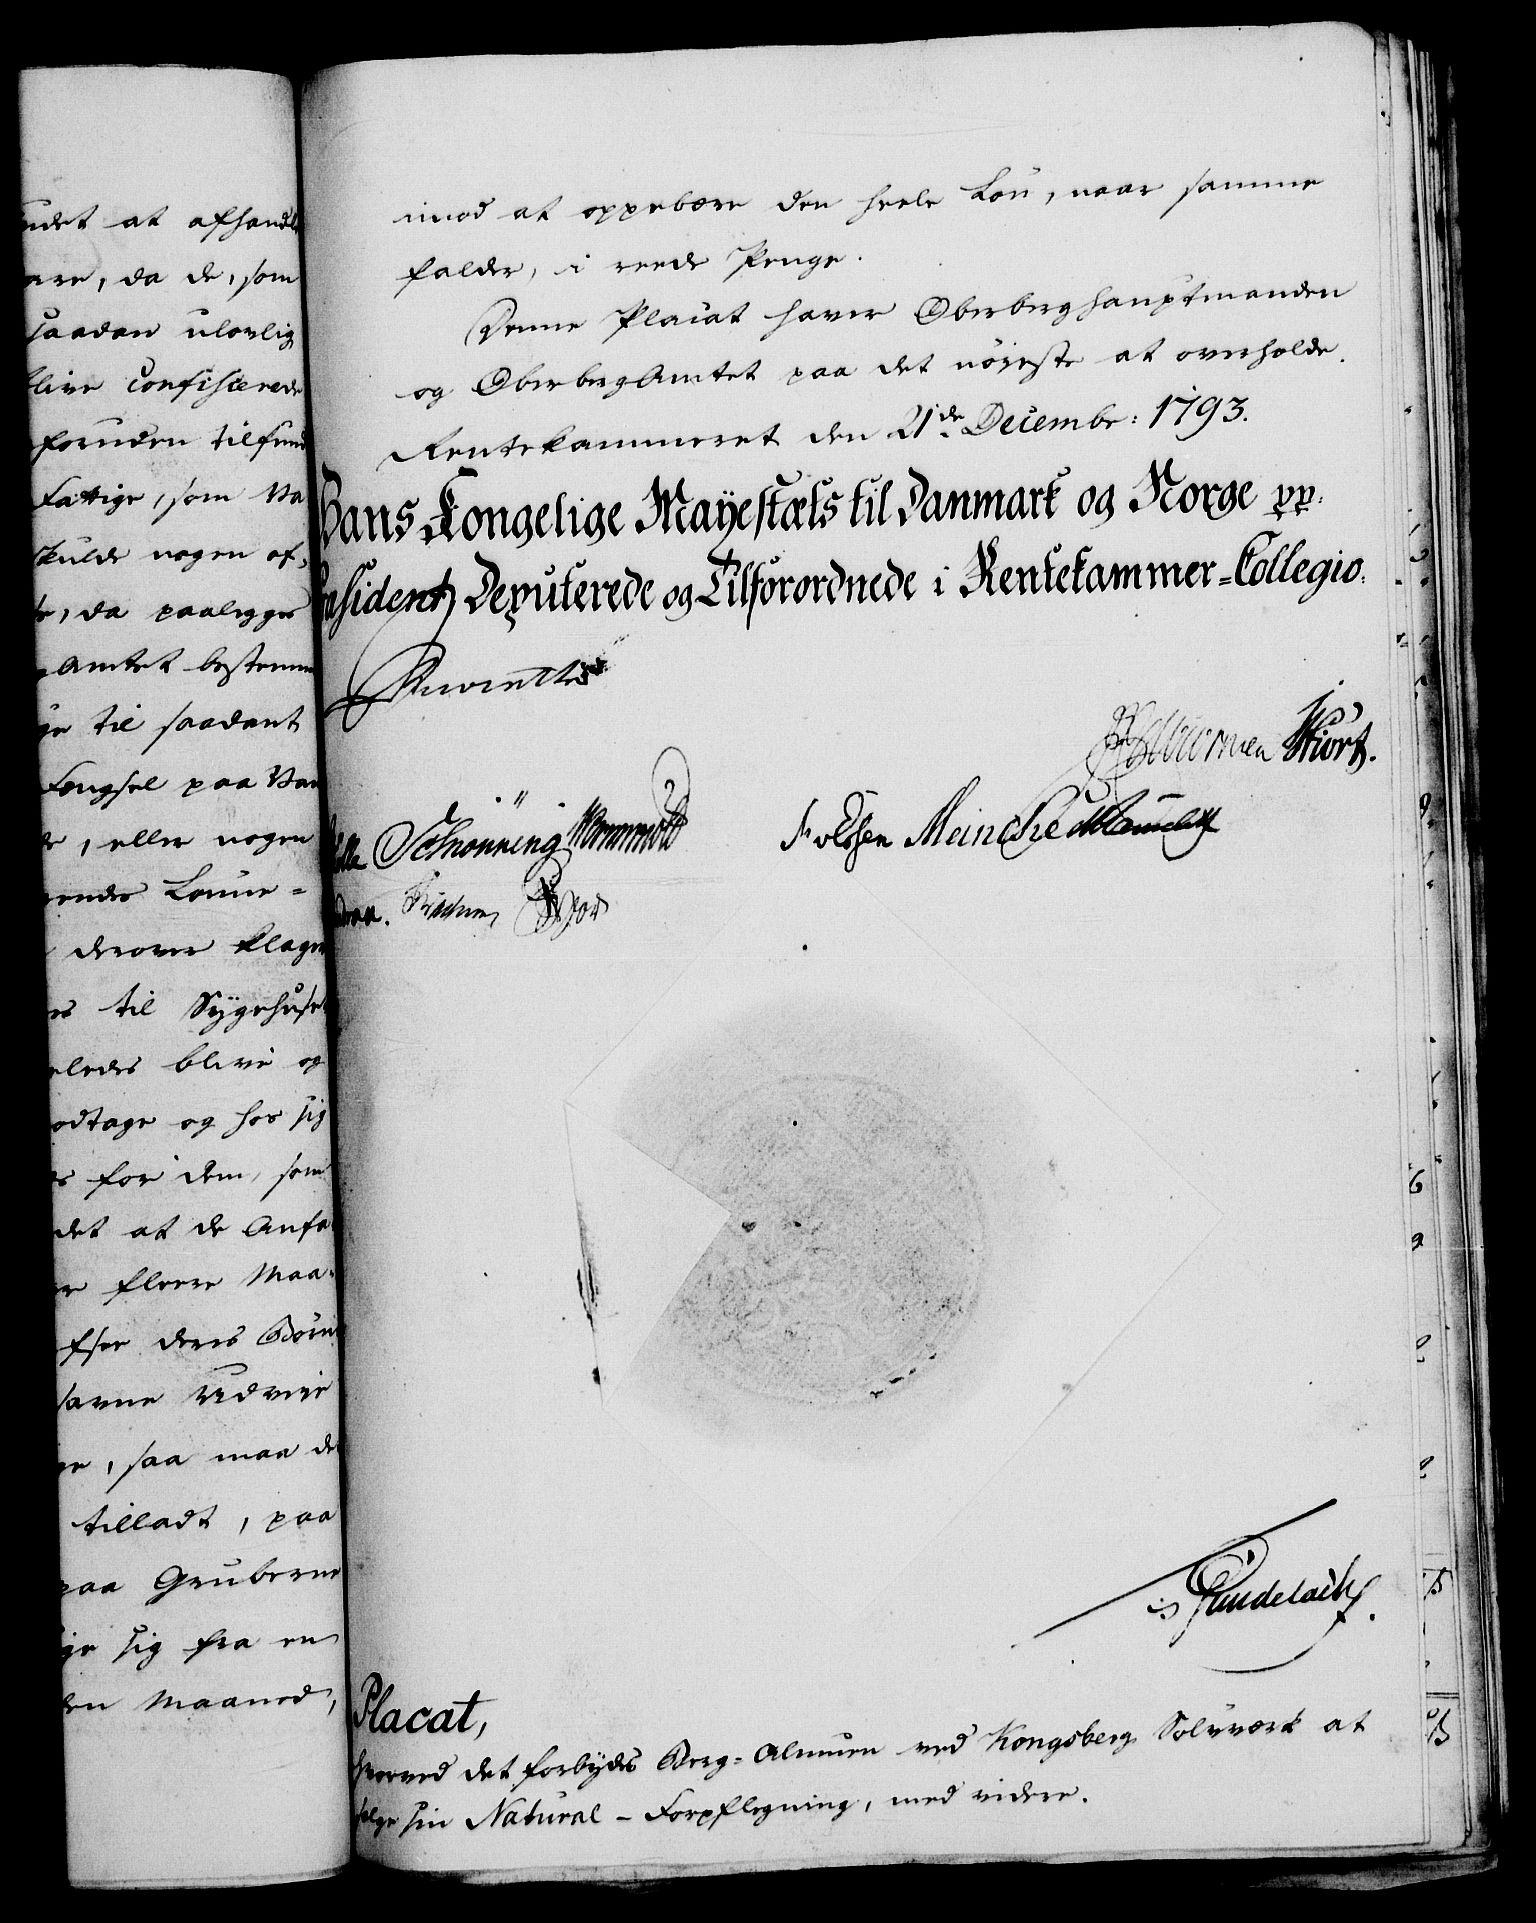 udet at afhandl
are, da de, som
saadan ulovlig
blive confiscerede
foruden tilfund
Fattige, som Va
skulde nogen af,
da paalegges
Amtet bestemm
ge til saadant
Fængsel paa Van
eller nogen
endes Lønne=
derover klage
es til Sygehuset
eledes blive og
odtage og hos sig
es for dem, som
det at de Anfø
er fleere Maa=
deres Børn
Udveie
ge, saa maa de
tilladt, paa
paa Gruberne
ge sig fra en
den Maaned,
imod at oppebære den heele Løn, naar samme
falder, i reede Penge.
Denne Placat haver Oberberghauptmanden
og OberbergAmtet paa det nøieste at overholde.
Rentekammeret den 21de Decembr: 1793.
Hans Kongelige Mayestæts til Danmark og Norge pp:
æsident, Deputerede og Tilforordnede i Rentekammer=Collegio.
Reventlow
Hiort.
Schiønning Wormskiold
Meincke
Gundelach.
Placat,
hvorved det forbydes Berg=Almuen ved Kongsberg Sølvværk at
sælge sin Natural-Forpflegning, med videre.